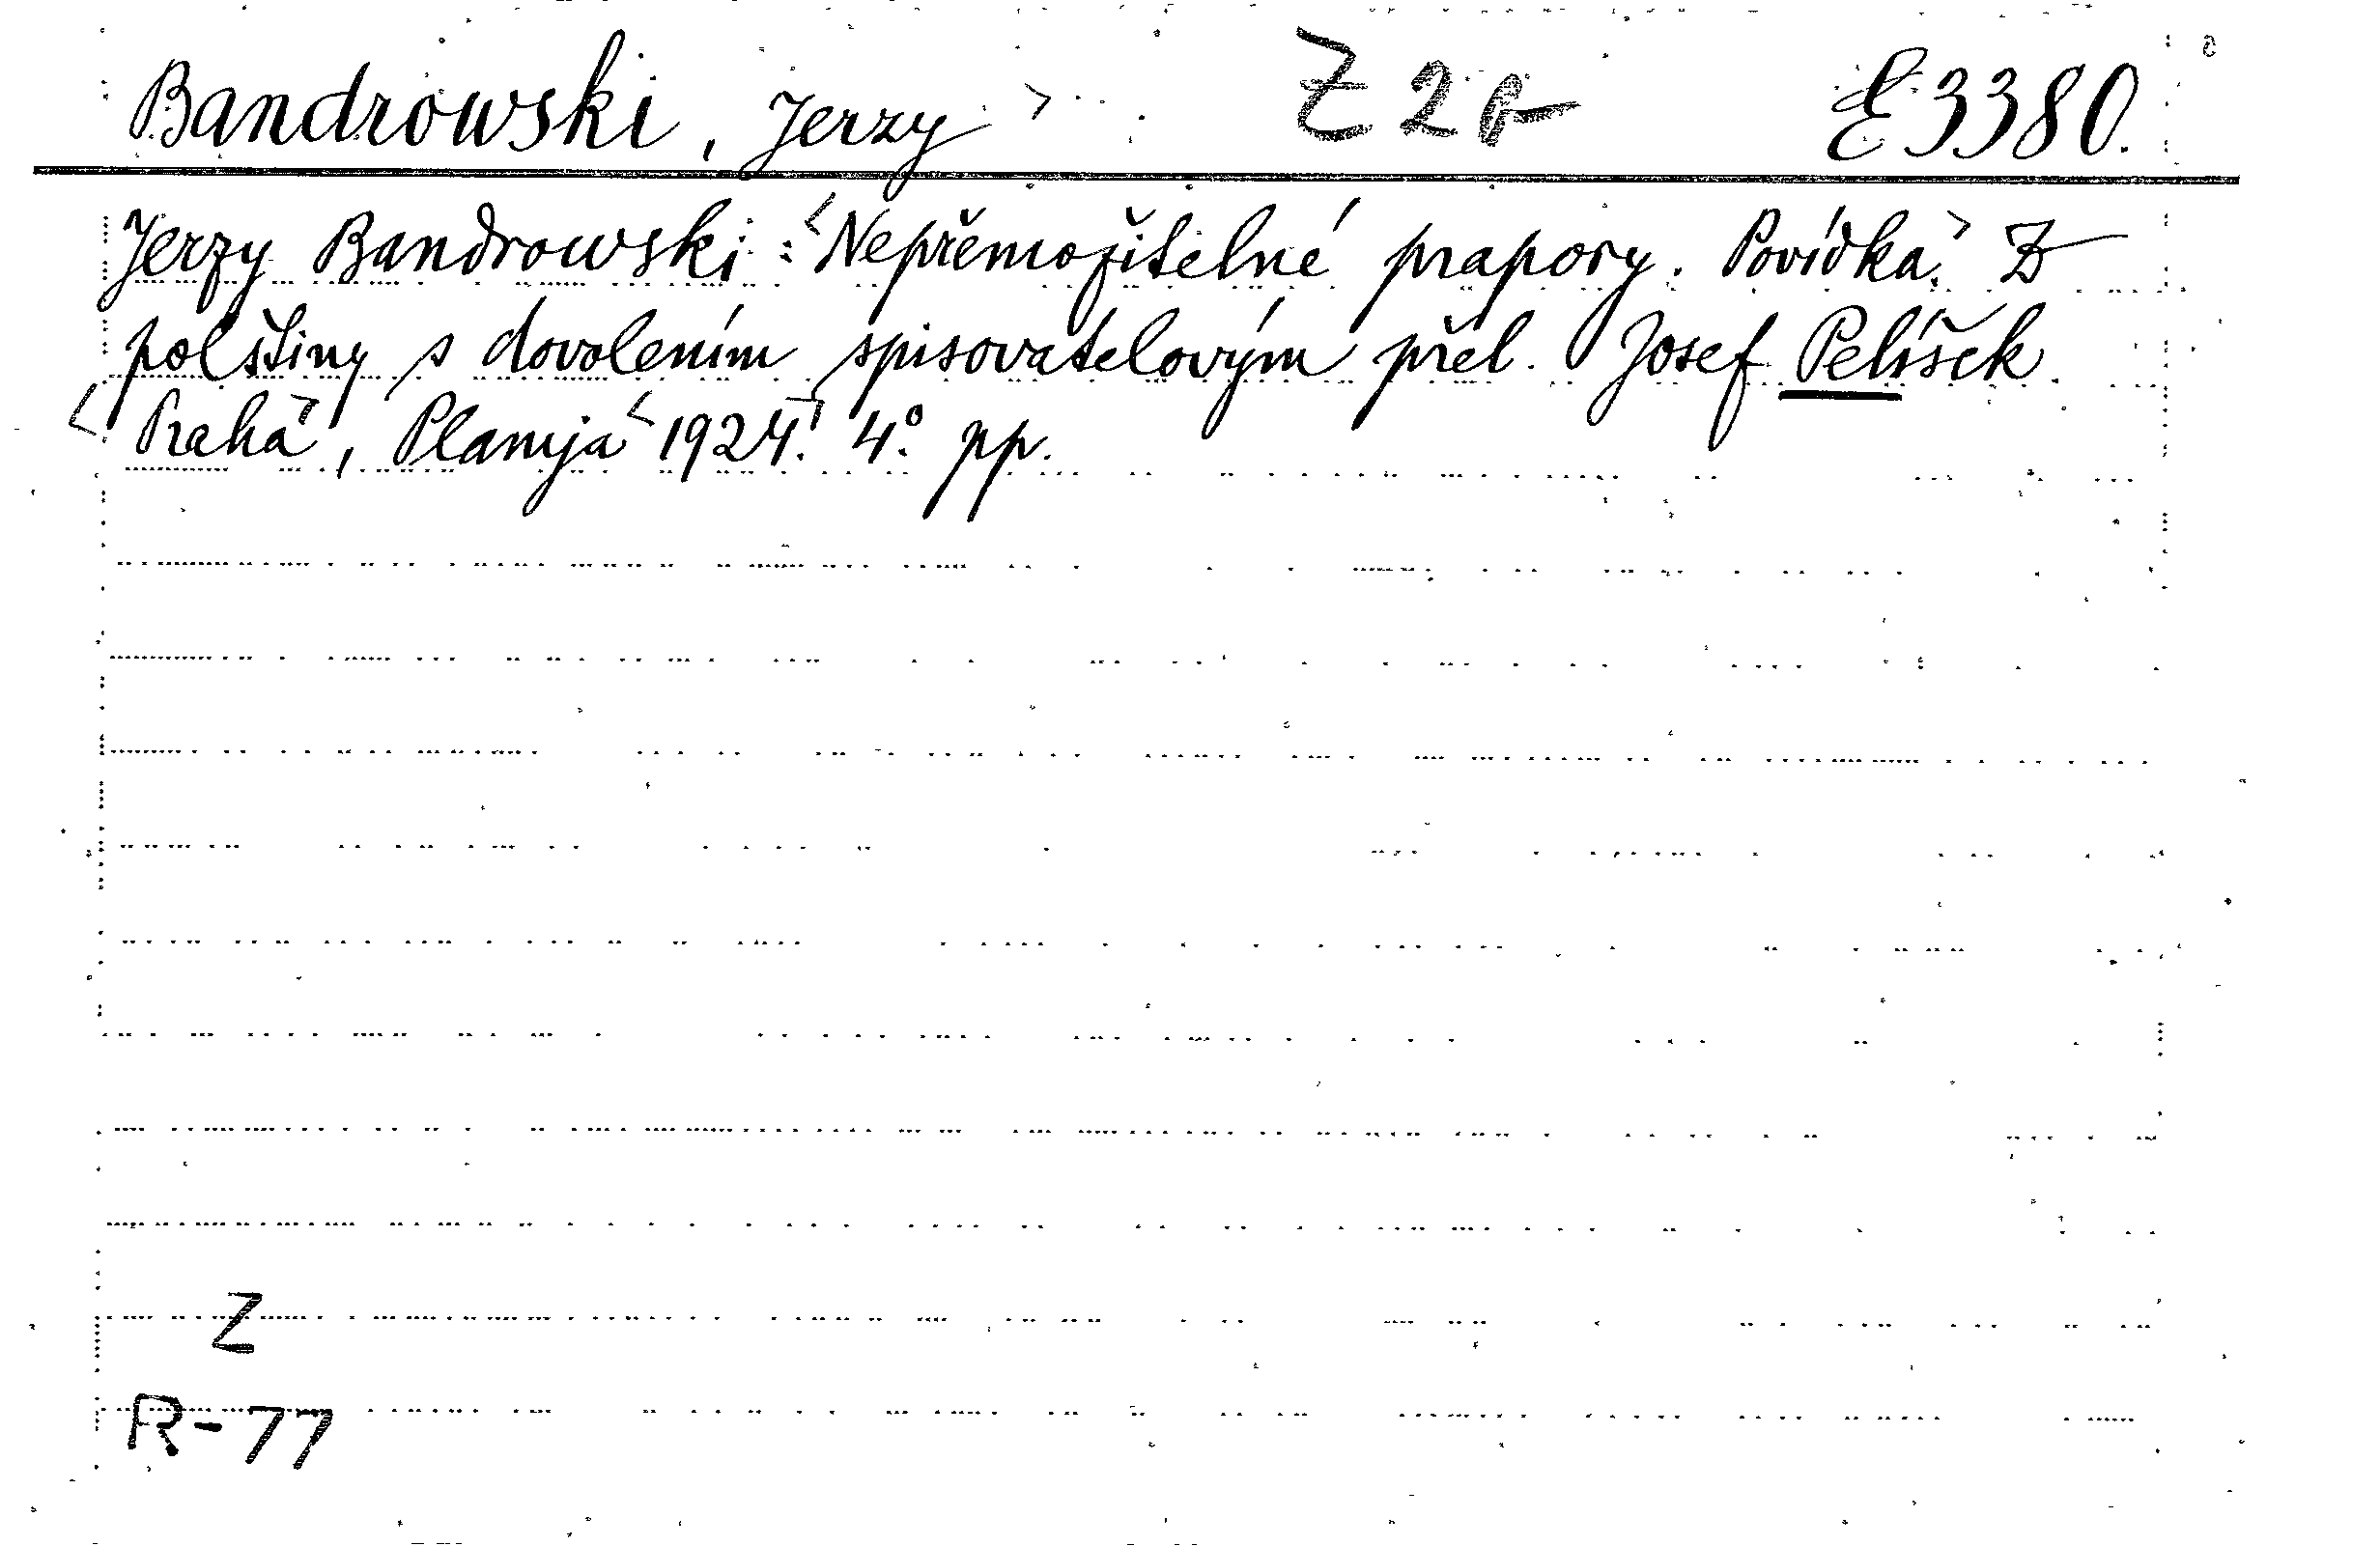 Bandrowski, Jerzy> Z 2 b E 3380.
Jerzy Bandrowski: <Nepřemožitelné prapory. Povídka.> Z
polštiny s dovolením spisovatelovým přel. Josef Pelíšek
<Praha>, Plamja <1924.> 4.° pp.
Z
R-77